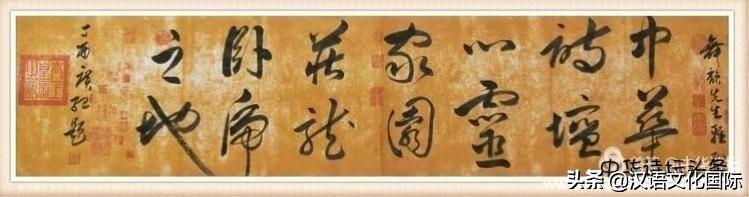 先生雅
中華
詩壇
心靈
家園
藏龍
卧虎
之地
丁酉題
中华诗坛头条
头条@汉语文化国际